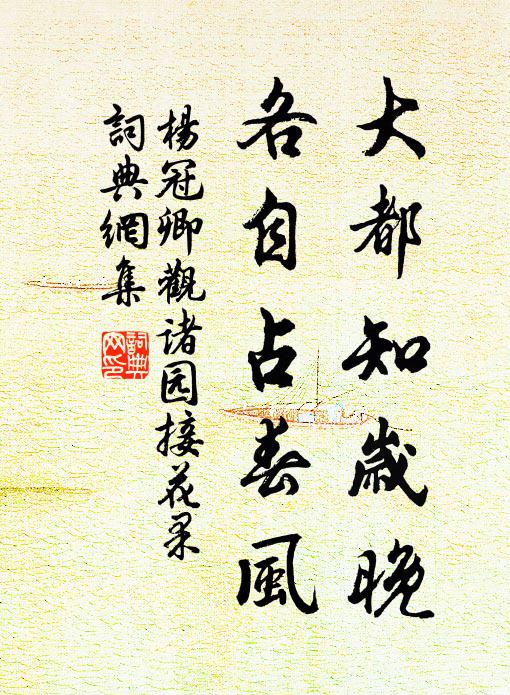 大都知歲晚
各自占春風
楊冠卿觀诸园接花果
詞典網集
詞典
网印